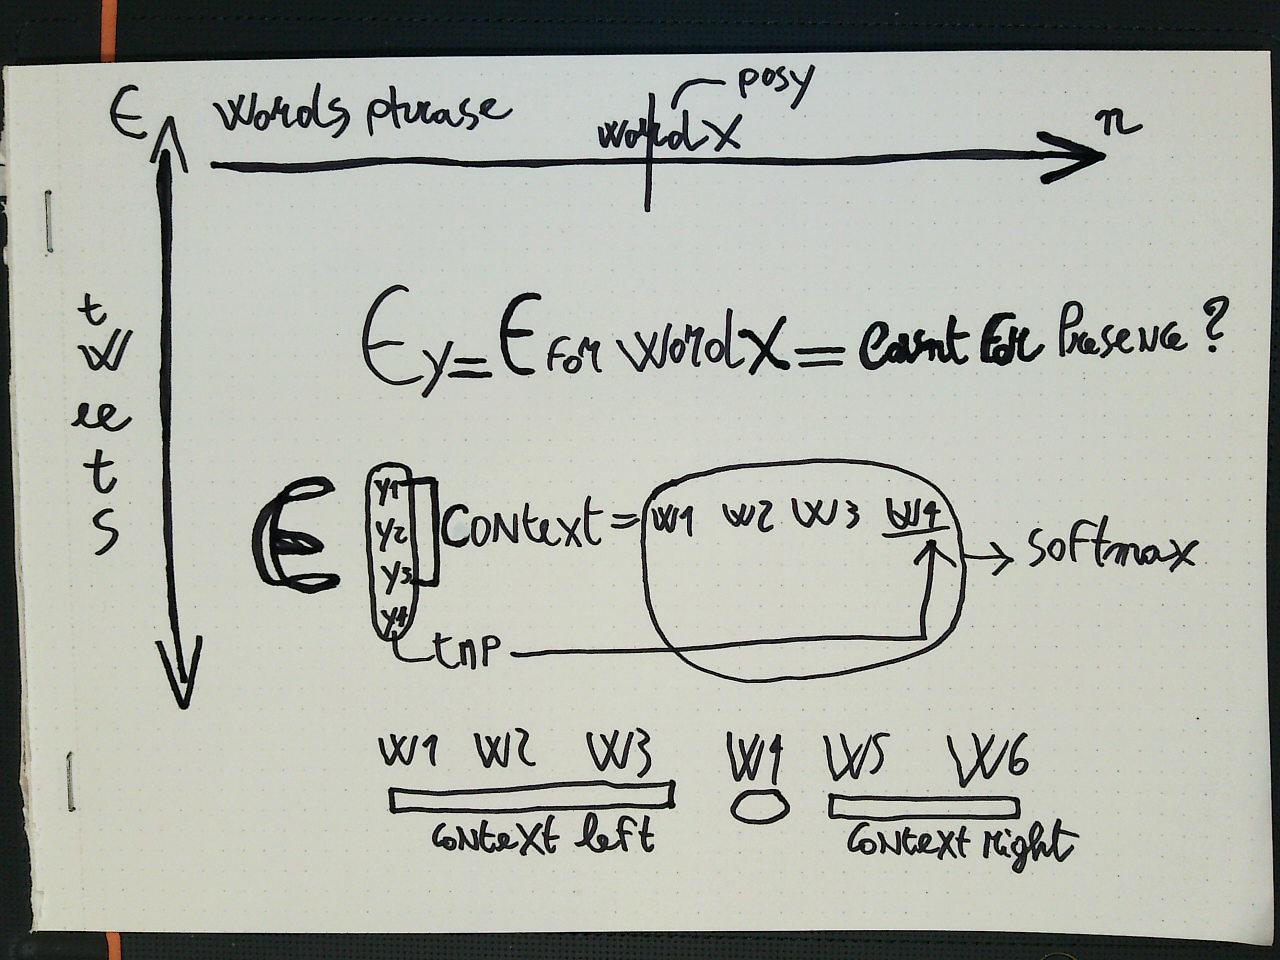 posy
E words phrase wordX n
tweets
Ey = E For wordX = Count For Presence ?
y1
y2
y3
y4
E Context = w1 w2 w3 w4 → softmax
tmp
w1 w2 w3 w4 w5 w6
context left context right